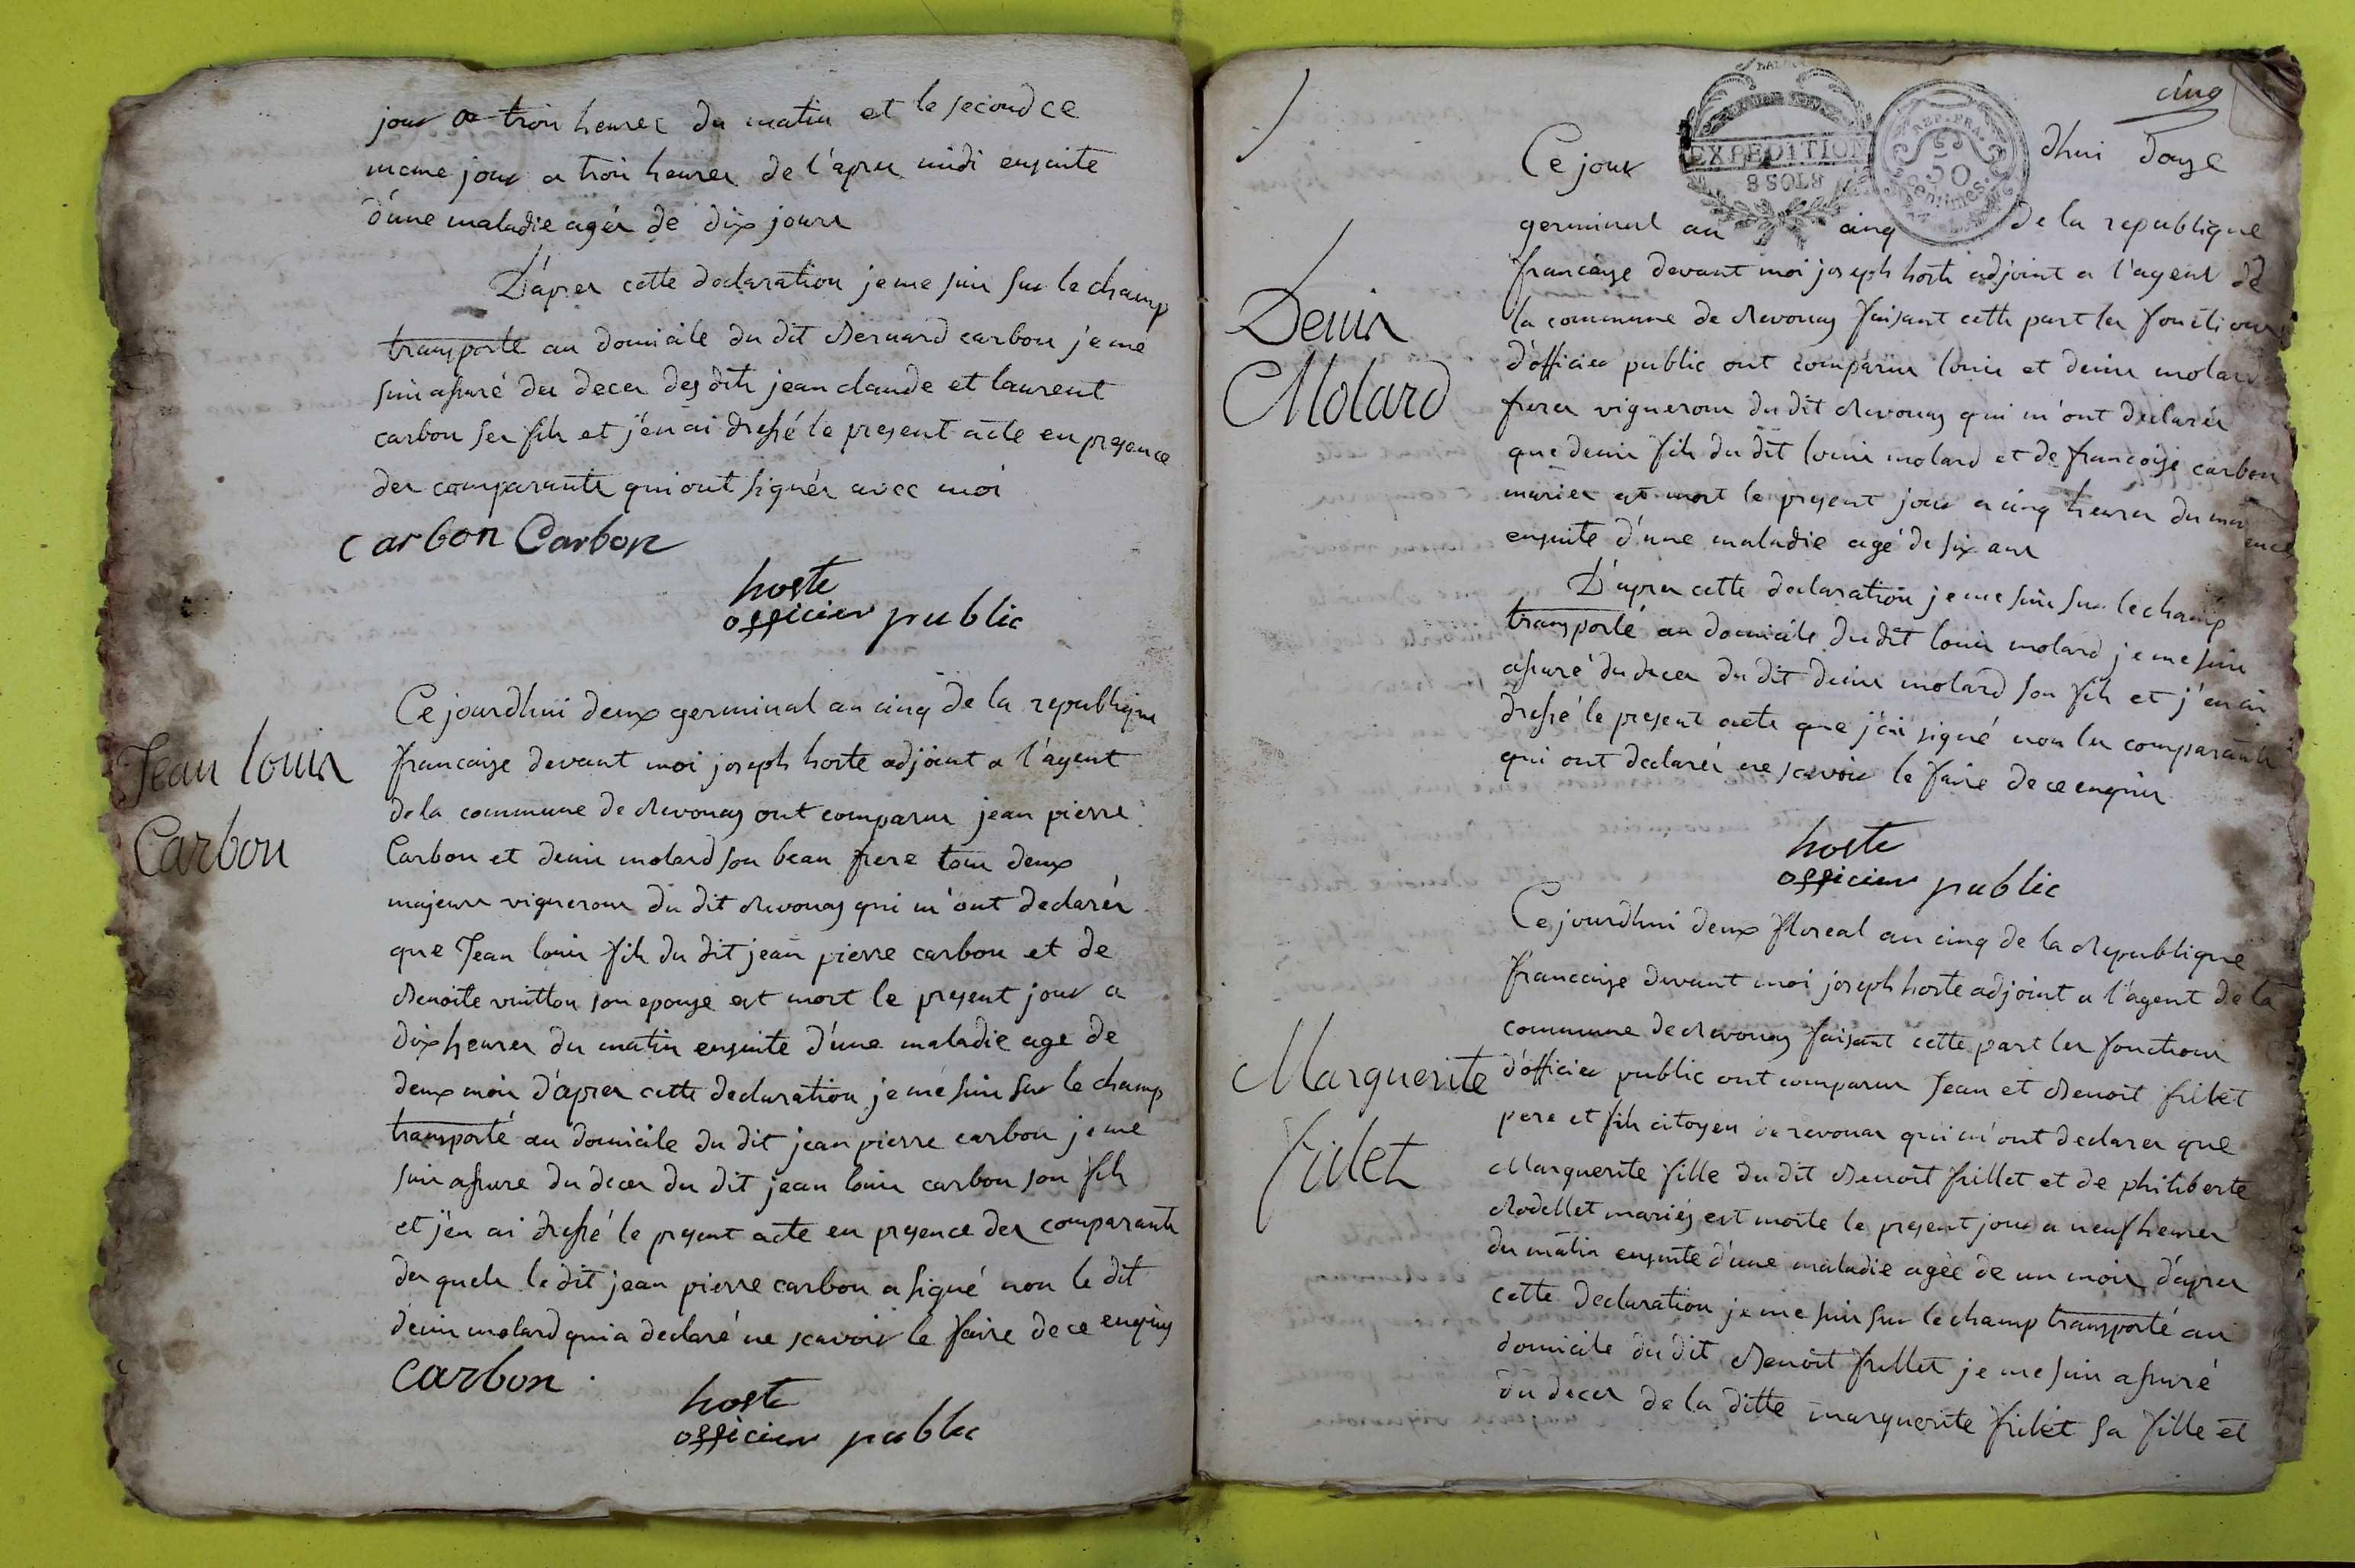 jour a troi heures du matin et le second ce
meme jour a troi heures de l'apres midi ensuite
d'une maladie agés de dix jours
D'apres cette declaration je me suis sur le champ
transporté au domicile du dit Bernard carbon je me
suis assuré des deces des dits jean claude et laurent
carbon ses fils et j'en ai dressé le present acte en presence
des comparants qui ont signés avec moi
carbon Carbon
hoste
officier public
Jean louis
Carbon
Ce jourdhui deux germinal an cinq de la republique
francaise devant moi joseph hoste adjoint a l'agent
de la commune de Revonas ont comparus jean pierre
Carbon et denis molard son beau frere tous deux
majeurs vignerons du dit Revonas qui m'ont declarés
que Jean louis fils du dit jean pierre carbon et de
Benoite vuitton son epouse est mort le present jour a
dix heures du matin ensuite d'une maladie age de
deux mois d'apres cette declaration je me suis sur le champ
transporté au domicile du dit jean pierre carbon je me
suis assure du deces du dit jean louis carbon son fils
et j'en ai dressé le present acte en presence des comparants
des quels le dit jean pierre carbon a signé non le dit
denis molard qui a declaré ne scavoir le faire de ce enquis
carbon
hoste
officier public
cinq
EXPEDITION
8 SOLS
REP. FRA.
50
centimes
Ce jour dhui douze
germinal an cinq de la republique
francaise devant moi joseph hoste adjoint a l'agent de
la commune de Revonas faisant cette part les fonctions
d'officier public ont comparus louis et denis molard
freres vignerons du dit Revonas qui m'ont declarés
que denis fils du dit louis molard et de francoise carbon
mariés est mort le present jour a cinq heures du
ensuite d'une maladie agé de six ans
Denis
Molard
D'apres cette declaration je me suis sur le champ
transporté au domicile du dit louis molard je me suis
assuré du deces du dit denis molard son fils et j'en ai
dressé le present acte que j'ai signé non les comparants
qui ont declarés ne scavoir le faire de ce enquis
hoste
officier public
Marguerite
frilet
Ce jourdhui deux floreal an cinq de la Republique
francaise devant moi joseph hoste adjoint a l'agent de la
commune de Revonas faisant cette part les fonctions
d'officier public ont comparus Jean et Benoit frilet
pere et fils citoyen de revonas qui m'ont declares que
Marguerite fille du dit Benoit frillet et de philiberte
Rodellet mariés est morte le present jour a neuf heures
du matin ensuite d'une maladie agée de un mois d'apres
cette declaration je me suis sur le champ transporté au
domicile du dit Benoit frillet je me suis assuré
du deces de la ditte marguerite frilet sa fille et